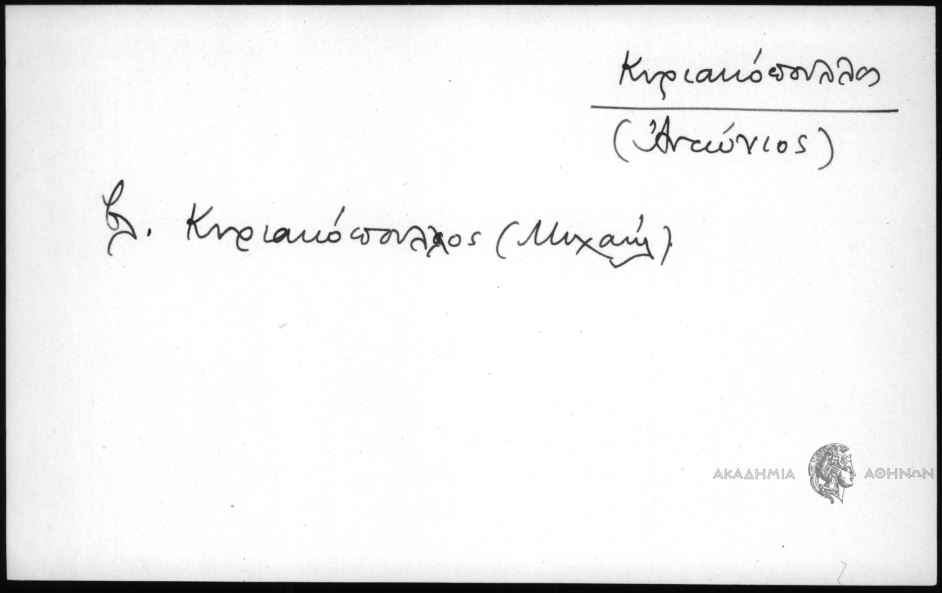 Κυριακόπουλλος
(Ἀντώνιος)
βλ. Κυριακόπουλλος (Μιχαήλ)
ΑΚΑΔΗΜΙΑ ΑΘΗΝΩΝ